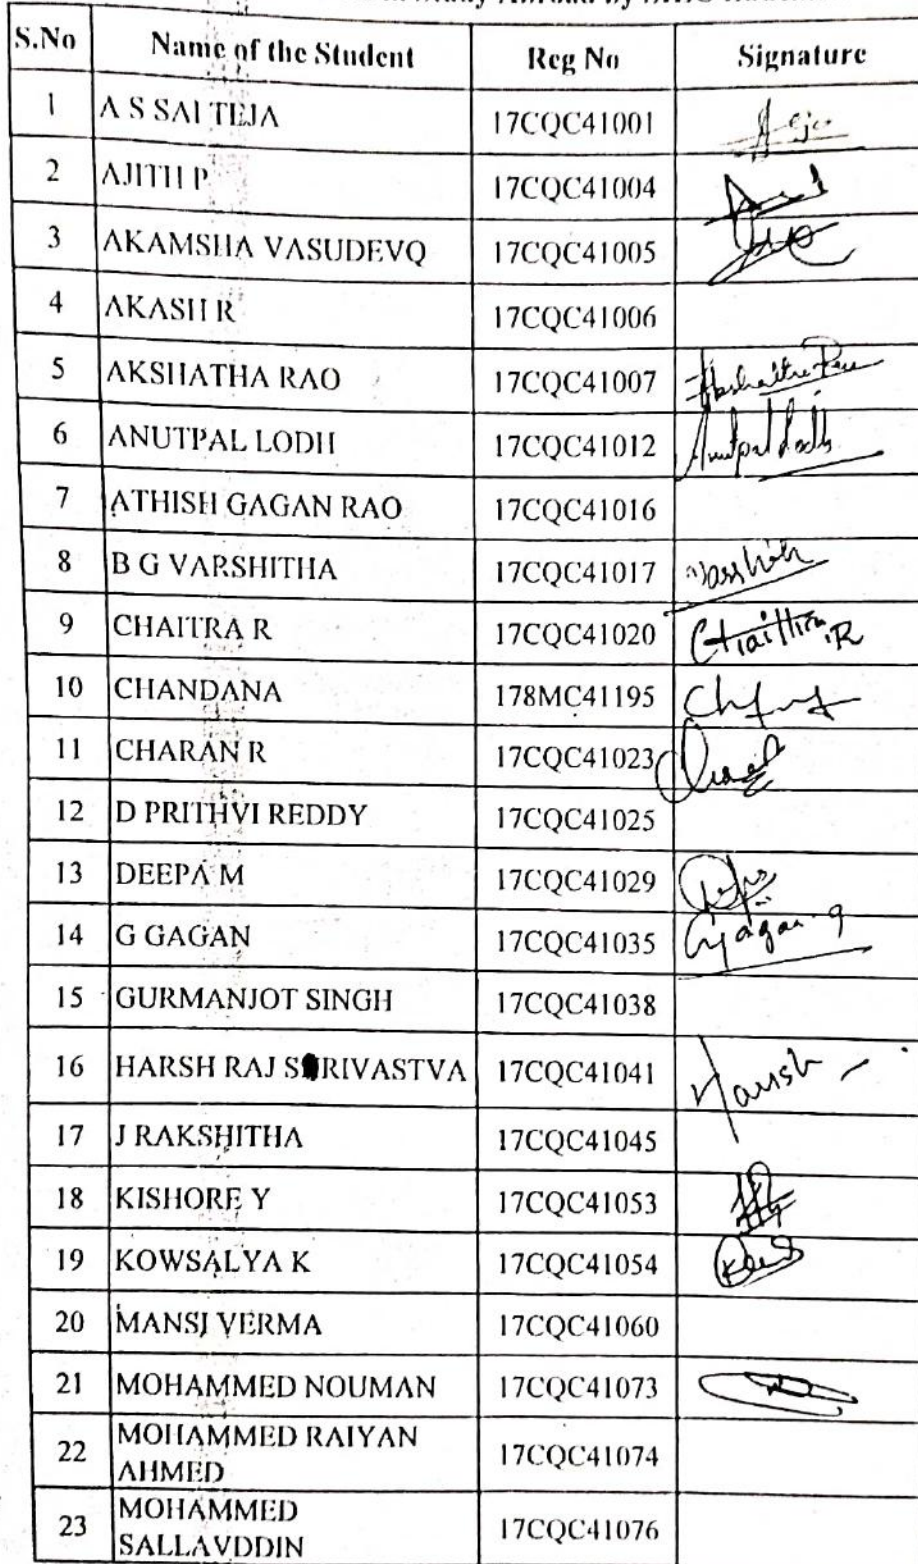 Study Abroad by
S.No Name of the Student Reg No Signature
1 A S SAI TEJA 17CQC41001
2 AJITH P 17CQC41004
3 AKAMSHA VASUDEVQ 17CQC41005
4 AKASH R 17CQC41006
5 AKSHATHA RAO 17CQC41007 Akshatha Rao
6 ANUTPAL LODH 17CQC41012 Anutpal Lodh
7 ATHISH GAGAN RAO 17CQC41016
8 B G VARSHITHA 17CQC41017
9 CHAITRA R 17CQC41020 Chaithra R
10 CHANDANA 178MC41195
11 CHARAN R 17CQC41023
12 D PRITHVI REDDY 17CQC41025
13 DEEPA M 17CQC41029
14 G GAGAN 17CQC41035 Gagan g
15 GURMANJOT SINGH 17CQC41038
16 HARSH RAJ SRIVASTVA 17CQC41041
17 J RAKSHITHA 17CQC41045
18 KISHORE Y 17CQC41053
19 KOWSALYA K 17CQC41054
20 MANSI VERMA 17CQC41060
21 MOHAMMED NOUMAN 17CQC41073
22 MOHAMMED RAIYAN 17CQC41074
AHMED
23 MOHAMMED 17CQC41076
SALLAVDDIN